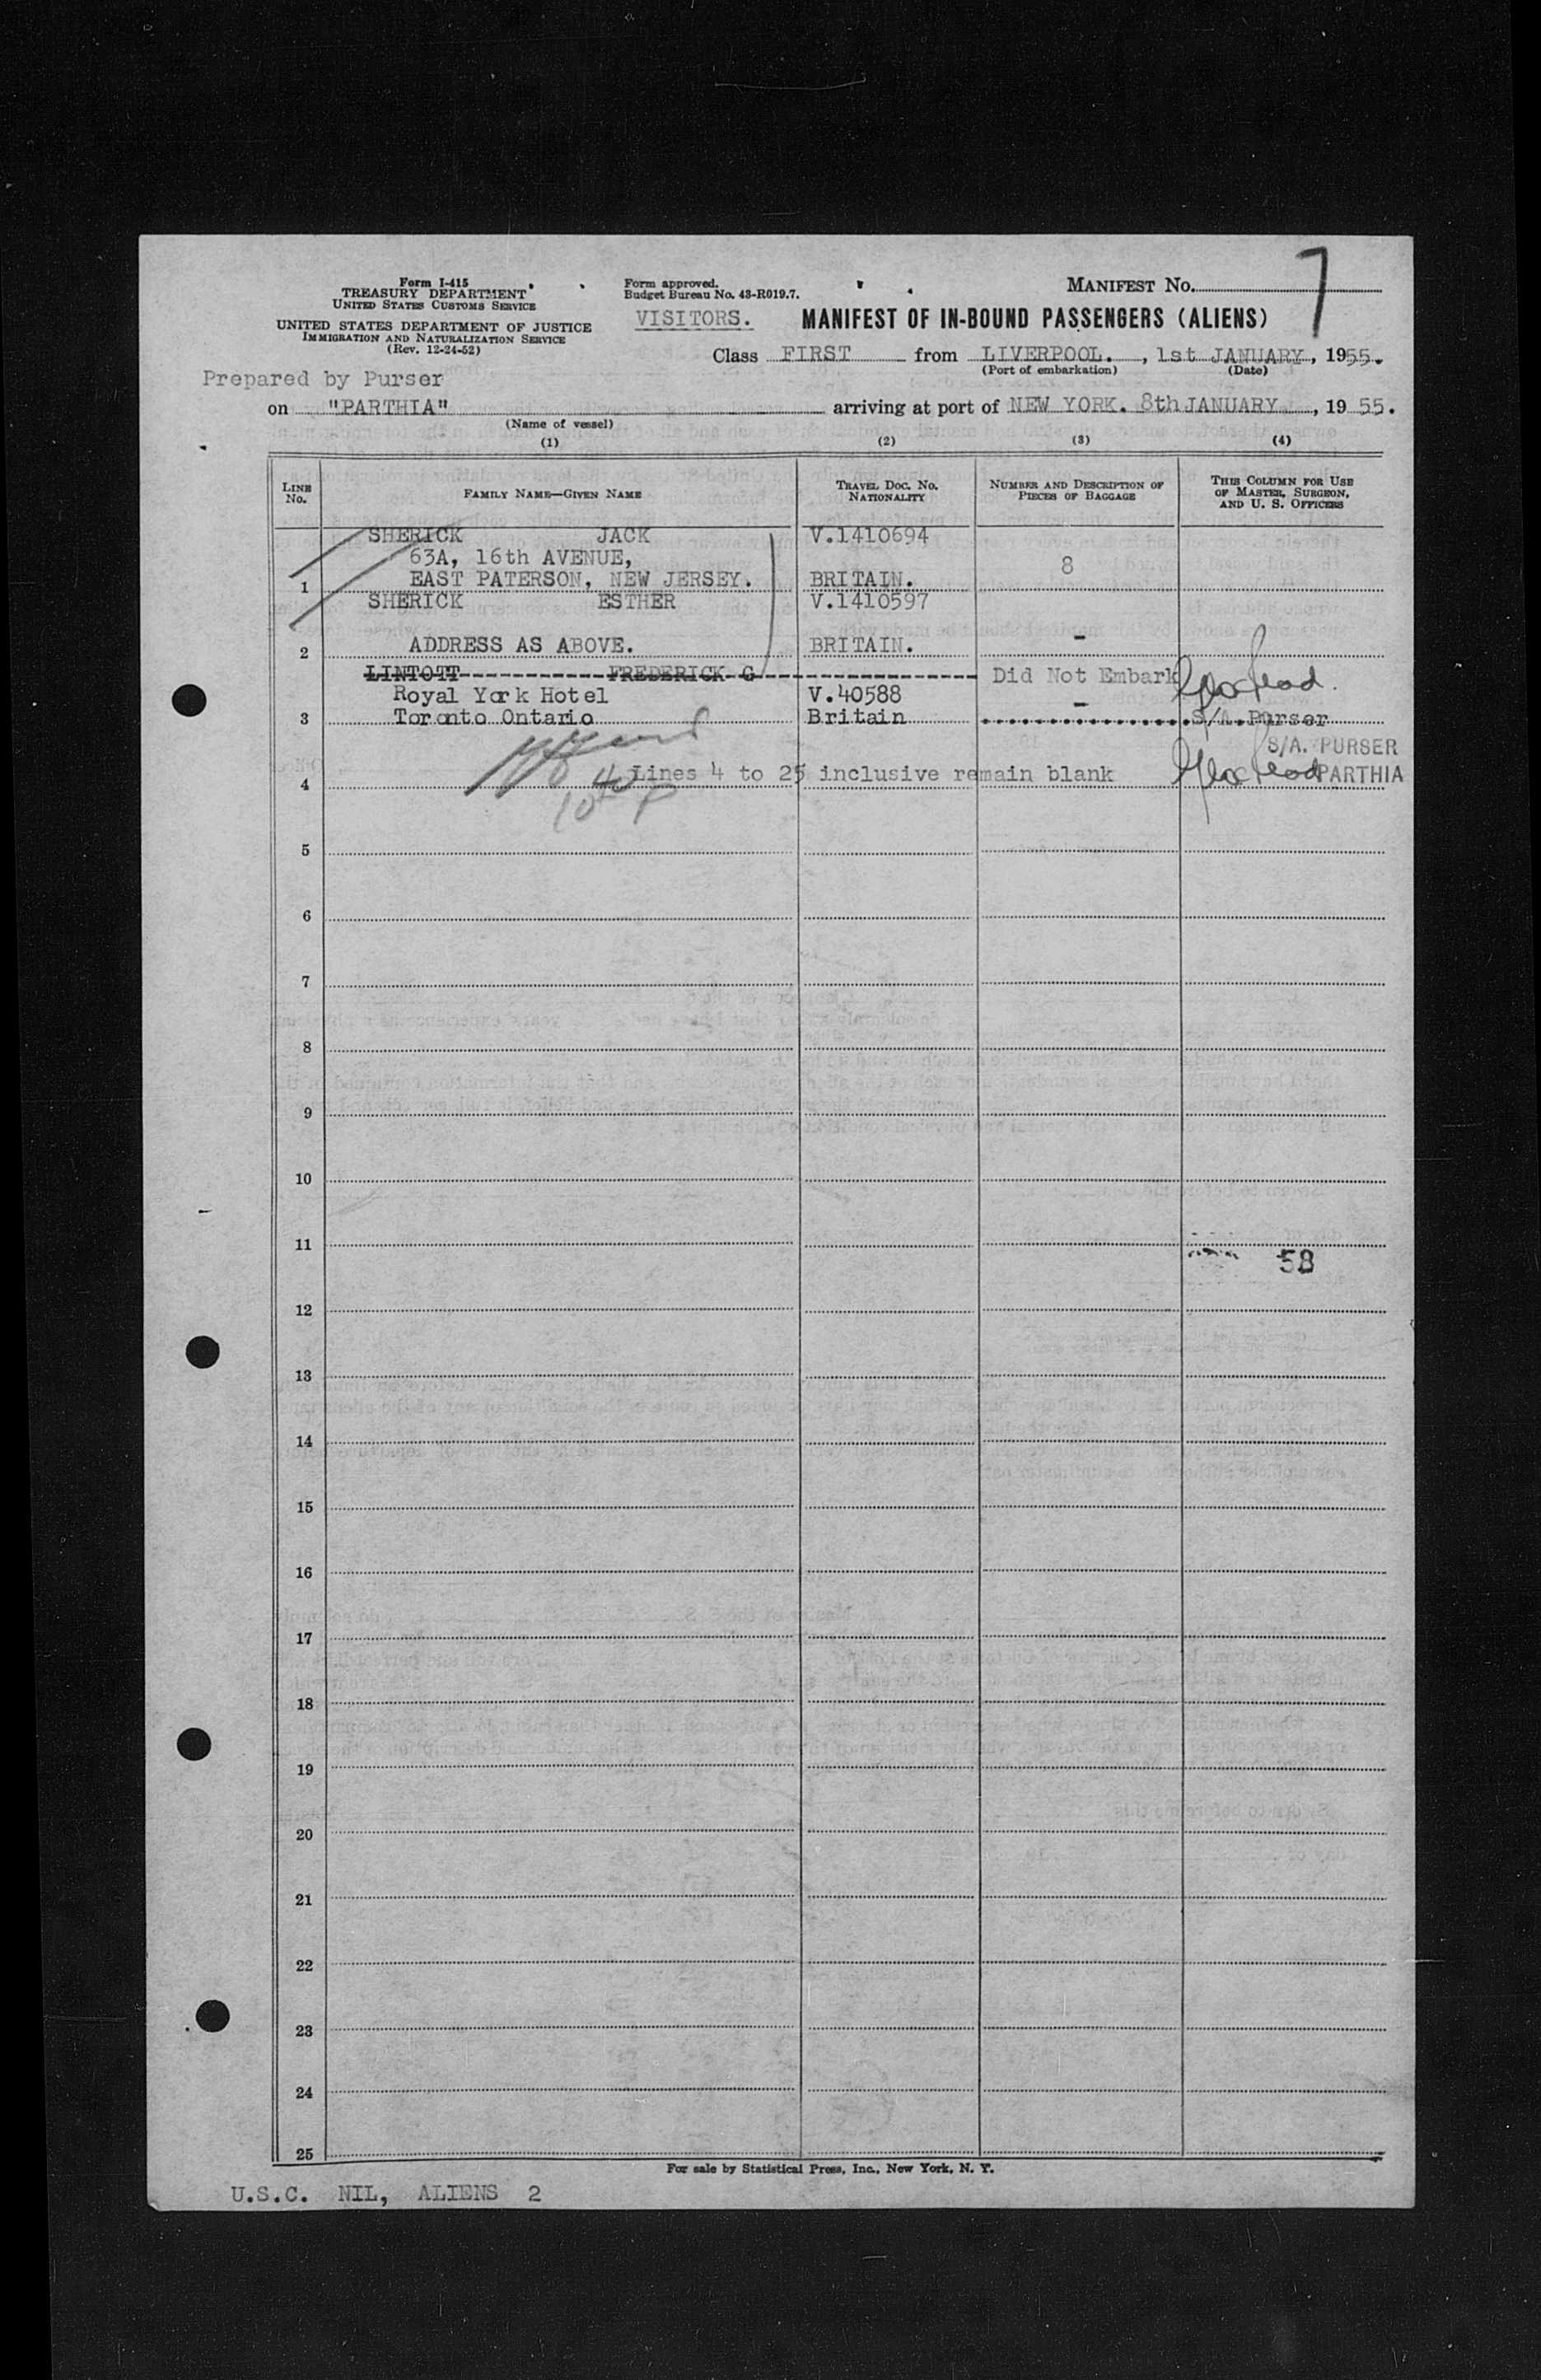 Form I-415
TREASURY DEPARTMENT
UNITED STATES CUSTOMS SERVICE
UNITED STATES DEPARTMENT OF JUSTICE
IMMIGRATION AND NATURALIZATION SERVICE
(Rev. 12-24-52)
Form approved.
Budget Bureau No. 43-R019.7.
VISITORS.
MANIFEST NO. 7
MANIFEST OF IN-BOUND PASSENGERS (ALIENS)
Class FIRST from LIVERPOOL. , 1st JANUARY, 1955.
(Port of embarkation) (Date)
Prepared by Purser
on "PARTHIA" arriving at port of NEW YORK. 8th JANUARY, 1955.
(Name of vessel)
(1) (2) (3) (4)
LINE NO. FAMILY NAME—GIVEN NAME TRAVEL DOC. NO. NATIONALITY NUMBER AND DESCRIPTION OF PIECES OF BAGGAGE THIS COLUMN FOR USE OF MASTER, SURGEON, AND U. S. OFFICERS
SHERICK JACK V.1410694
63A, 16th AVENUE, 8
1 EAST PATERSON, NEW JERSEY. BRITAIN.
SHERICK ESTHER V.1410597
2 ADDRESS AS ABOVE. BRITAIN. -
LINTOTT FREDERICK G Did Not Embark
Royal York Hotel V.40588 -
3 Toronto Ontario Britain S/A. Purser
S/A. PURSER
4 Lines 4 to 25 inclusive remain blank PARTHIA
5
6
7
8
9
10
11
58
12
13
14
15
16
17
18
19
20
21
22
23
24
25
For sale by Statistical Press, Inc., New York, N. Y.
U.S.C. NIL, ALIENS 2